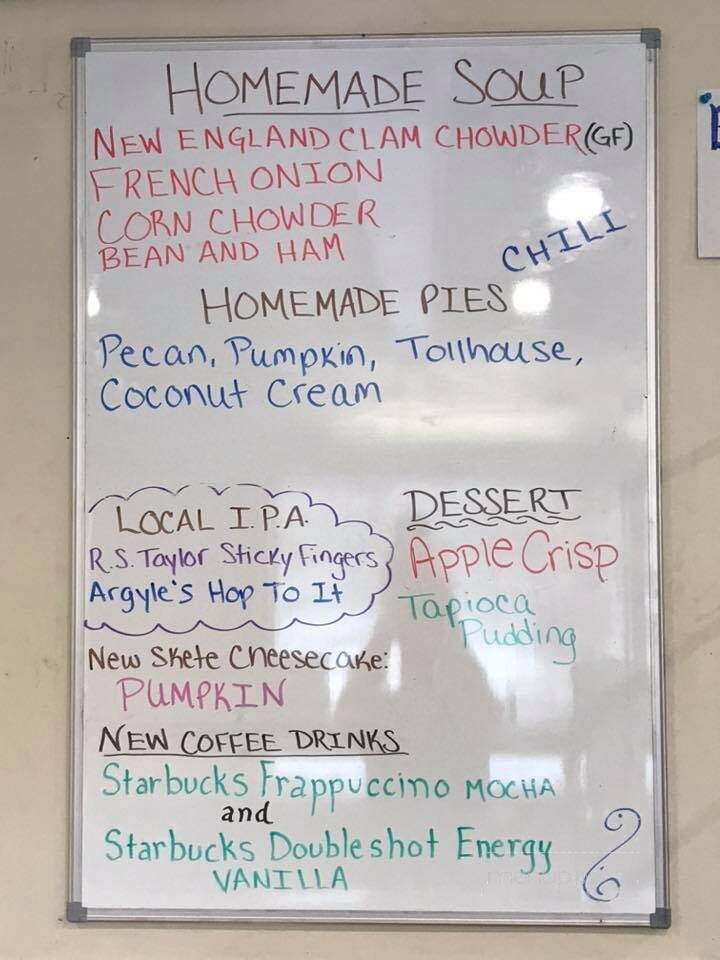 HOMEMADE SOUP
NEW ENGLAND CLAM CHOWDER (GF)
FRENCH ONION
CORN CHOWDER
BEAN AND HAM
CHILI
HOMEMADE PIES
Pecan, Pumpkin, Tollhouse,
Coconut Cream
LOCAL I.P.A.
R.S. Taylor Sticky Fingers
Argyle's Hop To It
DESSERT
Apple Crisp
Tapioca
Pudding
New Skete Cheesecake:
PUMPKIN
NEW COFFEE DRINKS
Starbucks Frappuccino MOCHA
and
Starbucks Doubleshot Energy
VANILLA